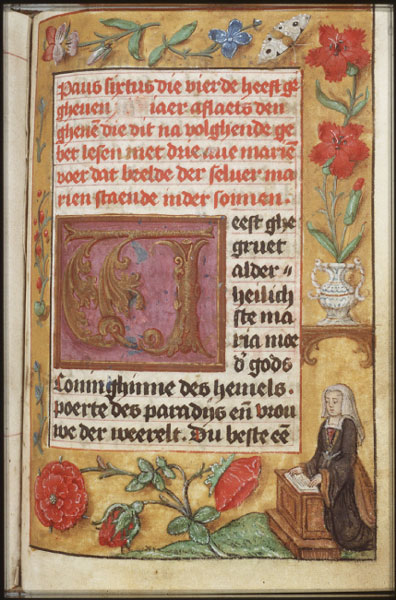 Paus sixtus die vierde heeft ge
gheven iaer aflaets den
ghenē die dit na volghende ge
bet lesen met drie aue mariē
voer dat beelde der seluer ma
rien staende inder sonnen.
Weest ghe
gruet
alder〃
heilich
ste ma
ria moe
d' gods
Coninghinne des hemels.
poerte des paradijs eñ vrou
we der weerelt. Du beste eē